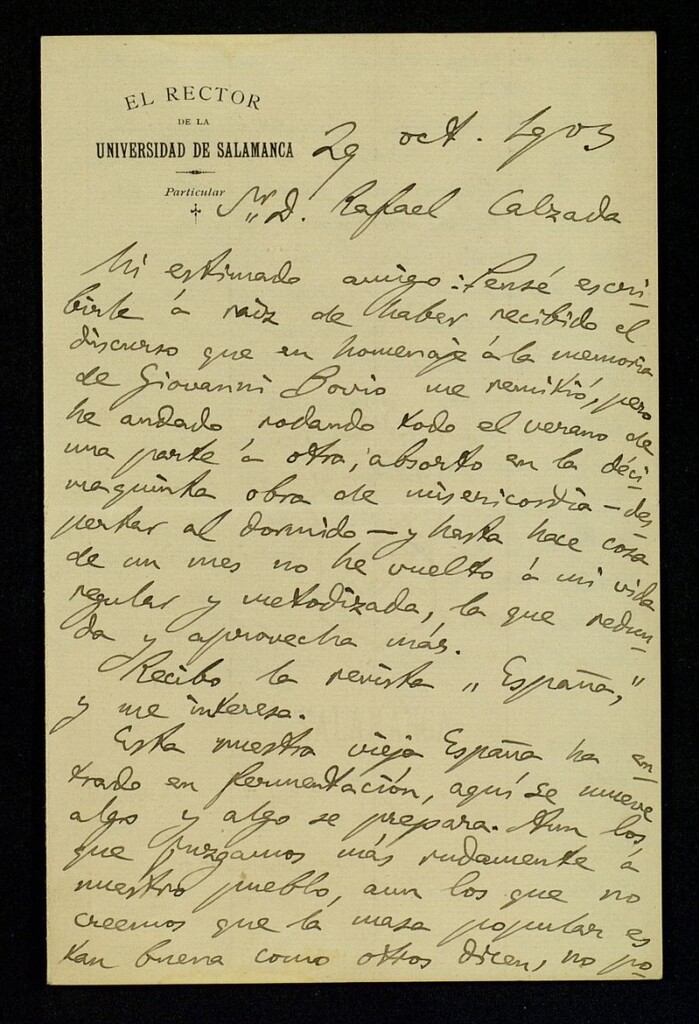 EL RECTOR
DE LA
UNIVERSIDAD DE SALAMANCA
Particular
29 oct. 1903
Sr. D. Rafael Calzada
Mi estimado amigo: Pensé escri-
birle á raiz de haber recibido el
discurso que en homenaje á la memoria
de Giovanni Bovio me remitió, pero
he andado rodando todo el verano de
una parte á otra, absorto en la déci-
maquinta obra de misericordia – des
pertar al dormido – y hasta hace cosa
de un mes no he vuelto á mi vida
regular y metodizada, la que redun-
da y aprovecha más.
Recibo la revista "España,"
y me interesa.
Esta nuestra vieja España ha en-
trado en fermentación, aquí se mueve
algo y algo se prepara. Aun los
que juzgamos más rudamente á
nuestro pueblo, aun los que no
creemos que la masa popular es
tan buena como otros dicen, no po-